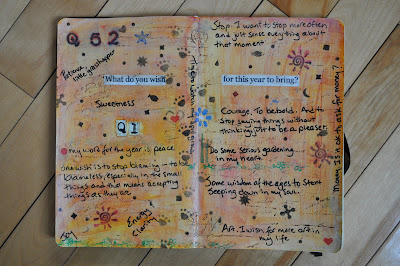 Q 52
Patience
little grasshopper
What do you wish
Sweetness
Q1
my word for the year is peace
one wish is to stop blaming - to be
blameless, especially in the small
things and that means accepting
things as they are
Energy
Clarity
Joy
Stop. I want to stop more often
and just sense everything about
that moment
for this year to bring?
Courage. To be bold. And to
stop saying things without
thinking, just to be a pleaser
Do some serious gardening
in my heart.
Some wisdom of the ages to start
seeping down in my soul.
Art. I wish for more art in
my life
Money as in ok to ask for money!